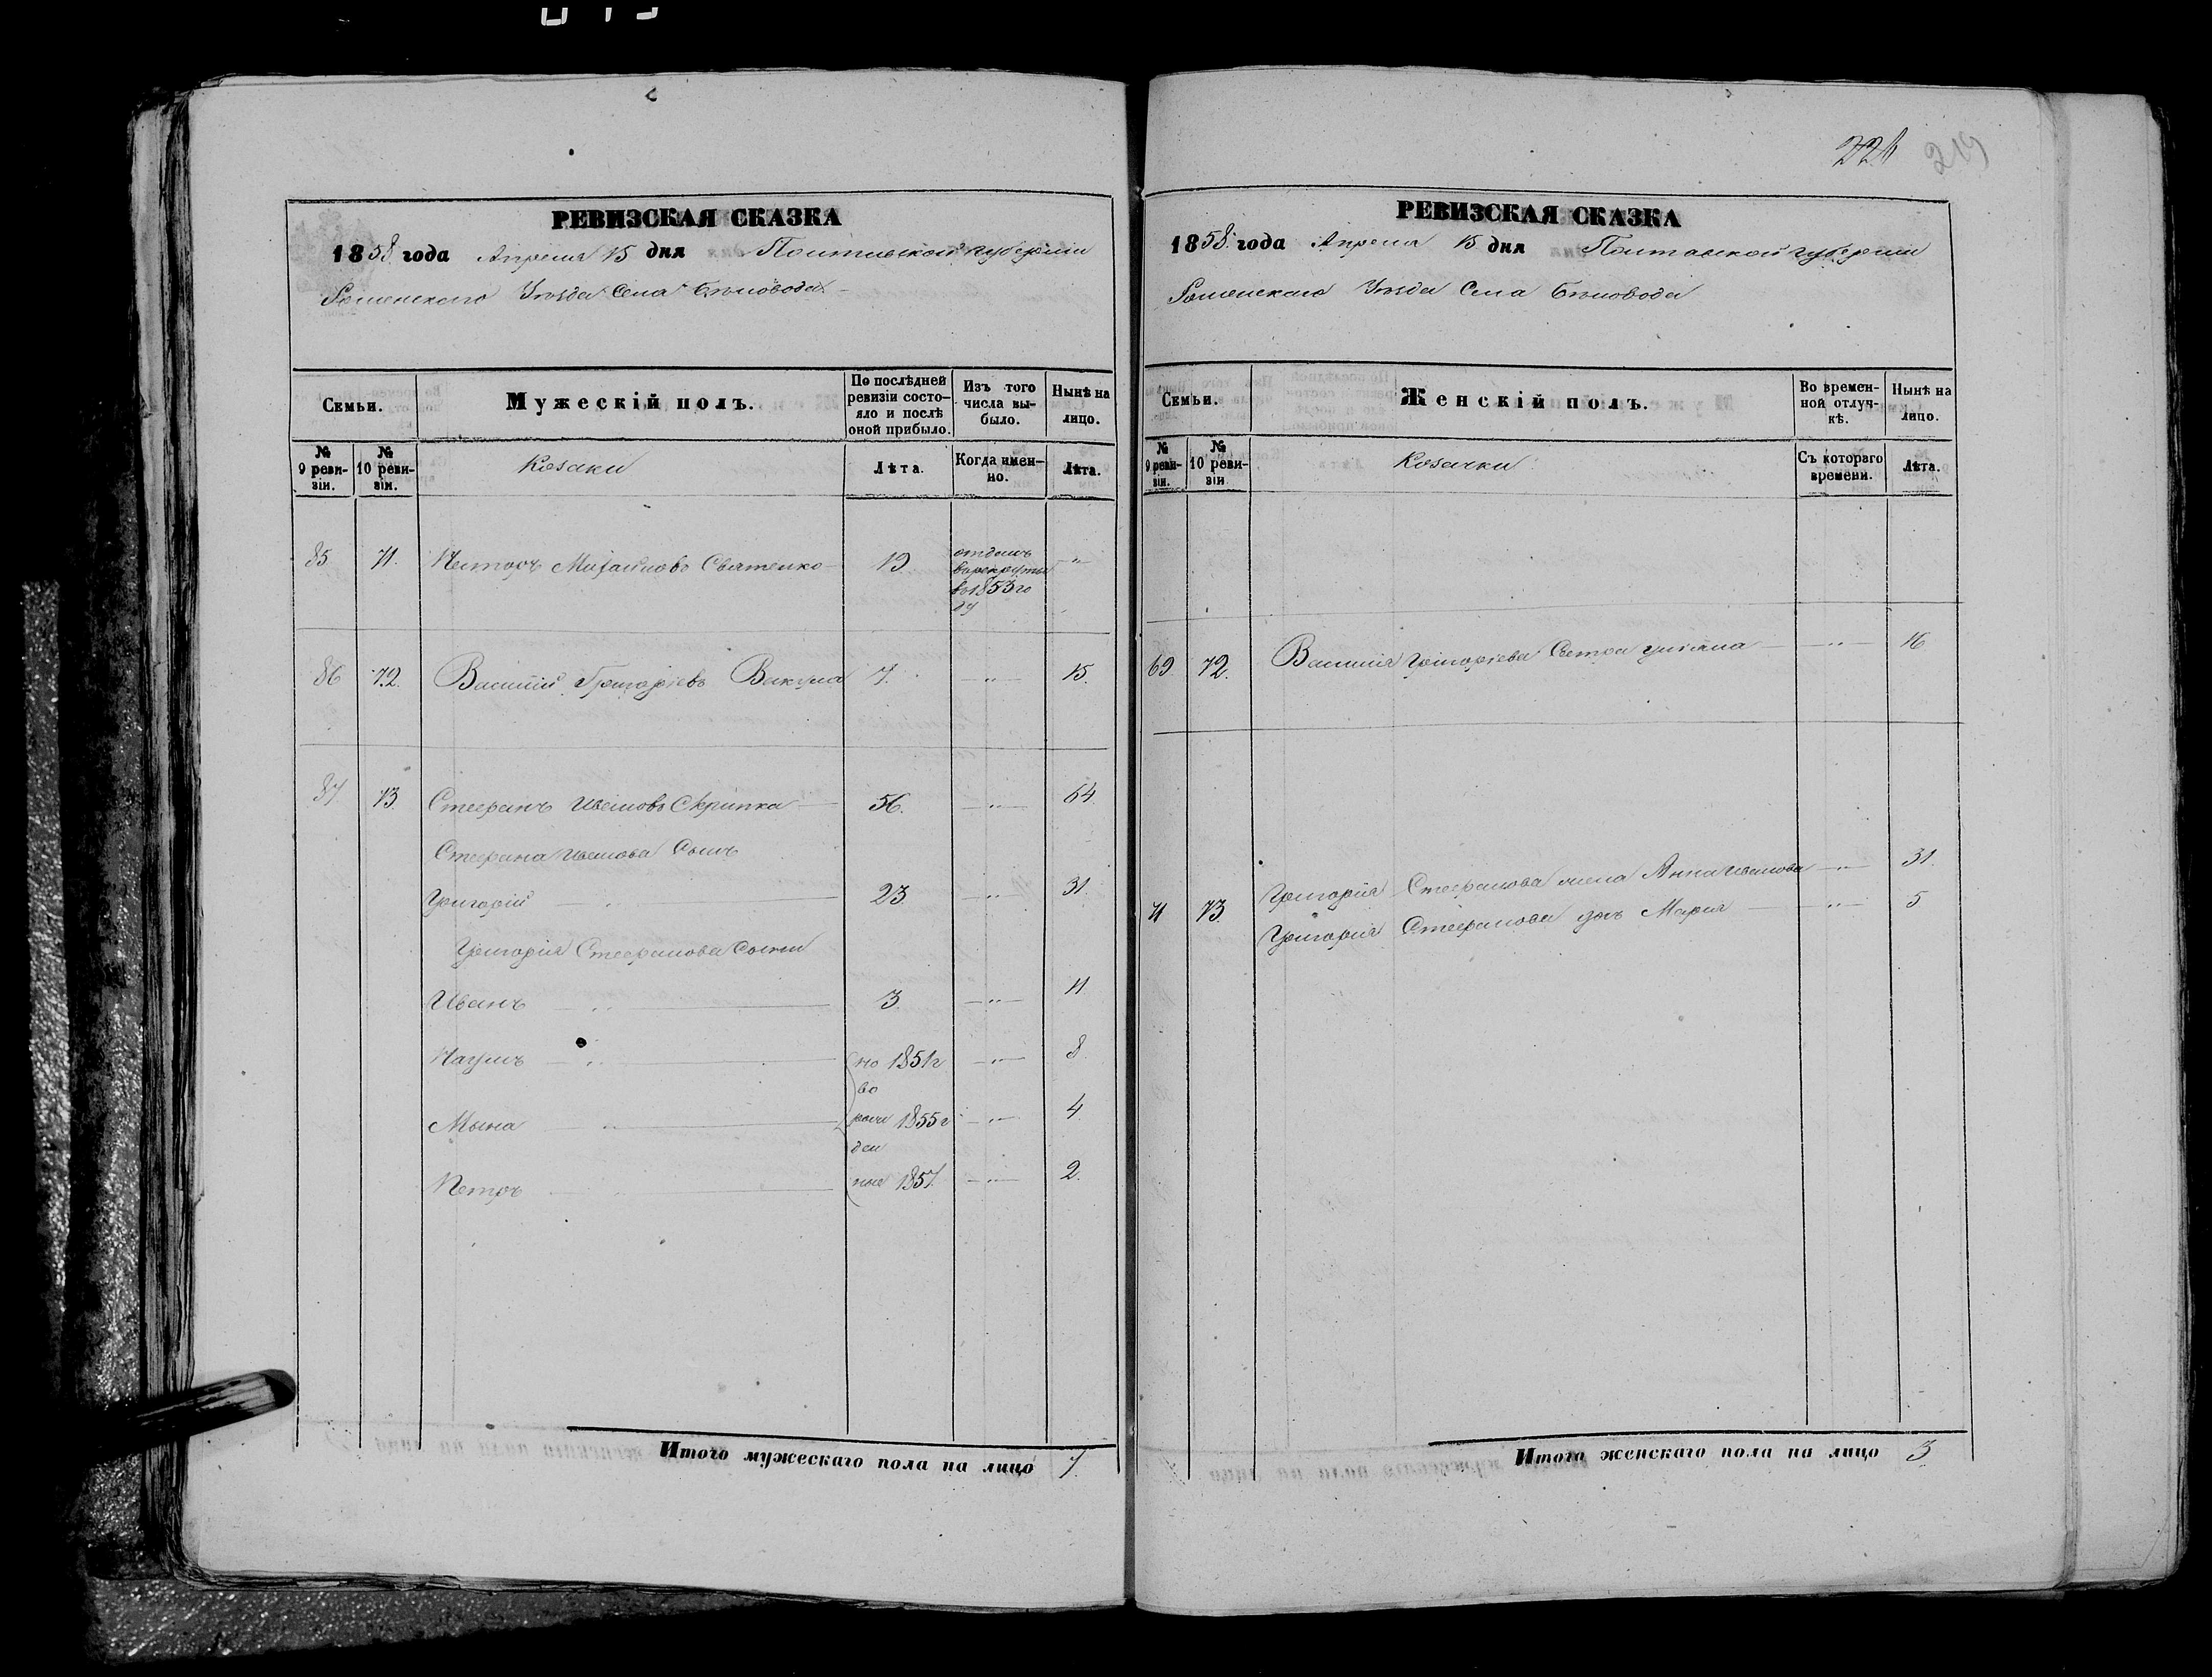 226 219
РЕВИЗСКАЯ СКАЗКА
1858 года Апреля 15 дня Полтавской губернии
Роменского Уезда Села Беловода
Семьи.
Мужескій полъ.
По послѣдней ревизіи состояло и послѣ оной прибыло.
Изъ того числа выбыло.
Нынѣ на лицо.
№ 9 ревизіи.
№ 10 ревизіи.
Козаки
Лѣта.
Когда именно.
Лѣта.
85 71. Несторъ Михайловъ Святенко 19 отданъ
в рекруты
в 1853 го
ду
86 72. Василий Григоріевъ Викула 7. 15.
87 73 Стефанъ Ивановъ Скрипка 56. 64.
Стефана Иванова Сынъ
Григорій 23 31.
Григорія Стефанова Сыны
Иванъ 3 11
Наумъ но 1851 г 8
во
Мына рож 1855 г 4
ден
Петръ ные 1857. 2.
Итого мужескаго пола на лицо 7.
РЕВИЗСКАЯ СКАЗКА
1858 года Апреля 15 дня Полтавской губернии
Роменскаго Уезда Села Беловода
Семьи.
Женскій полъ.
Во временной отлучкѣ.
Нынѣ на лицо.
№ 9 ревизіи.
№ 10 ревизіи
Козачки
Съ котораго времени.
Лѣта.
69 72. Василия Григоріева Сестра Улiяна 16
Григорія Стефанова жена Анна Иванова 31.
71 73. Григорія Стефанова дочь Мария 5
Итого женскаго пола на лицо 3